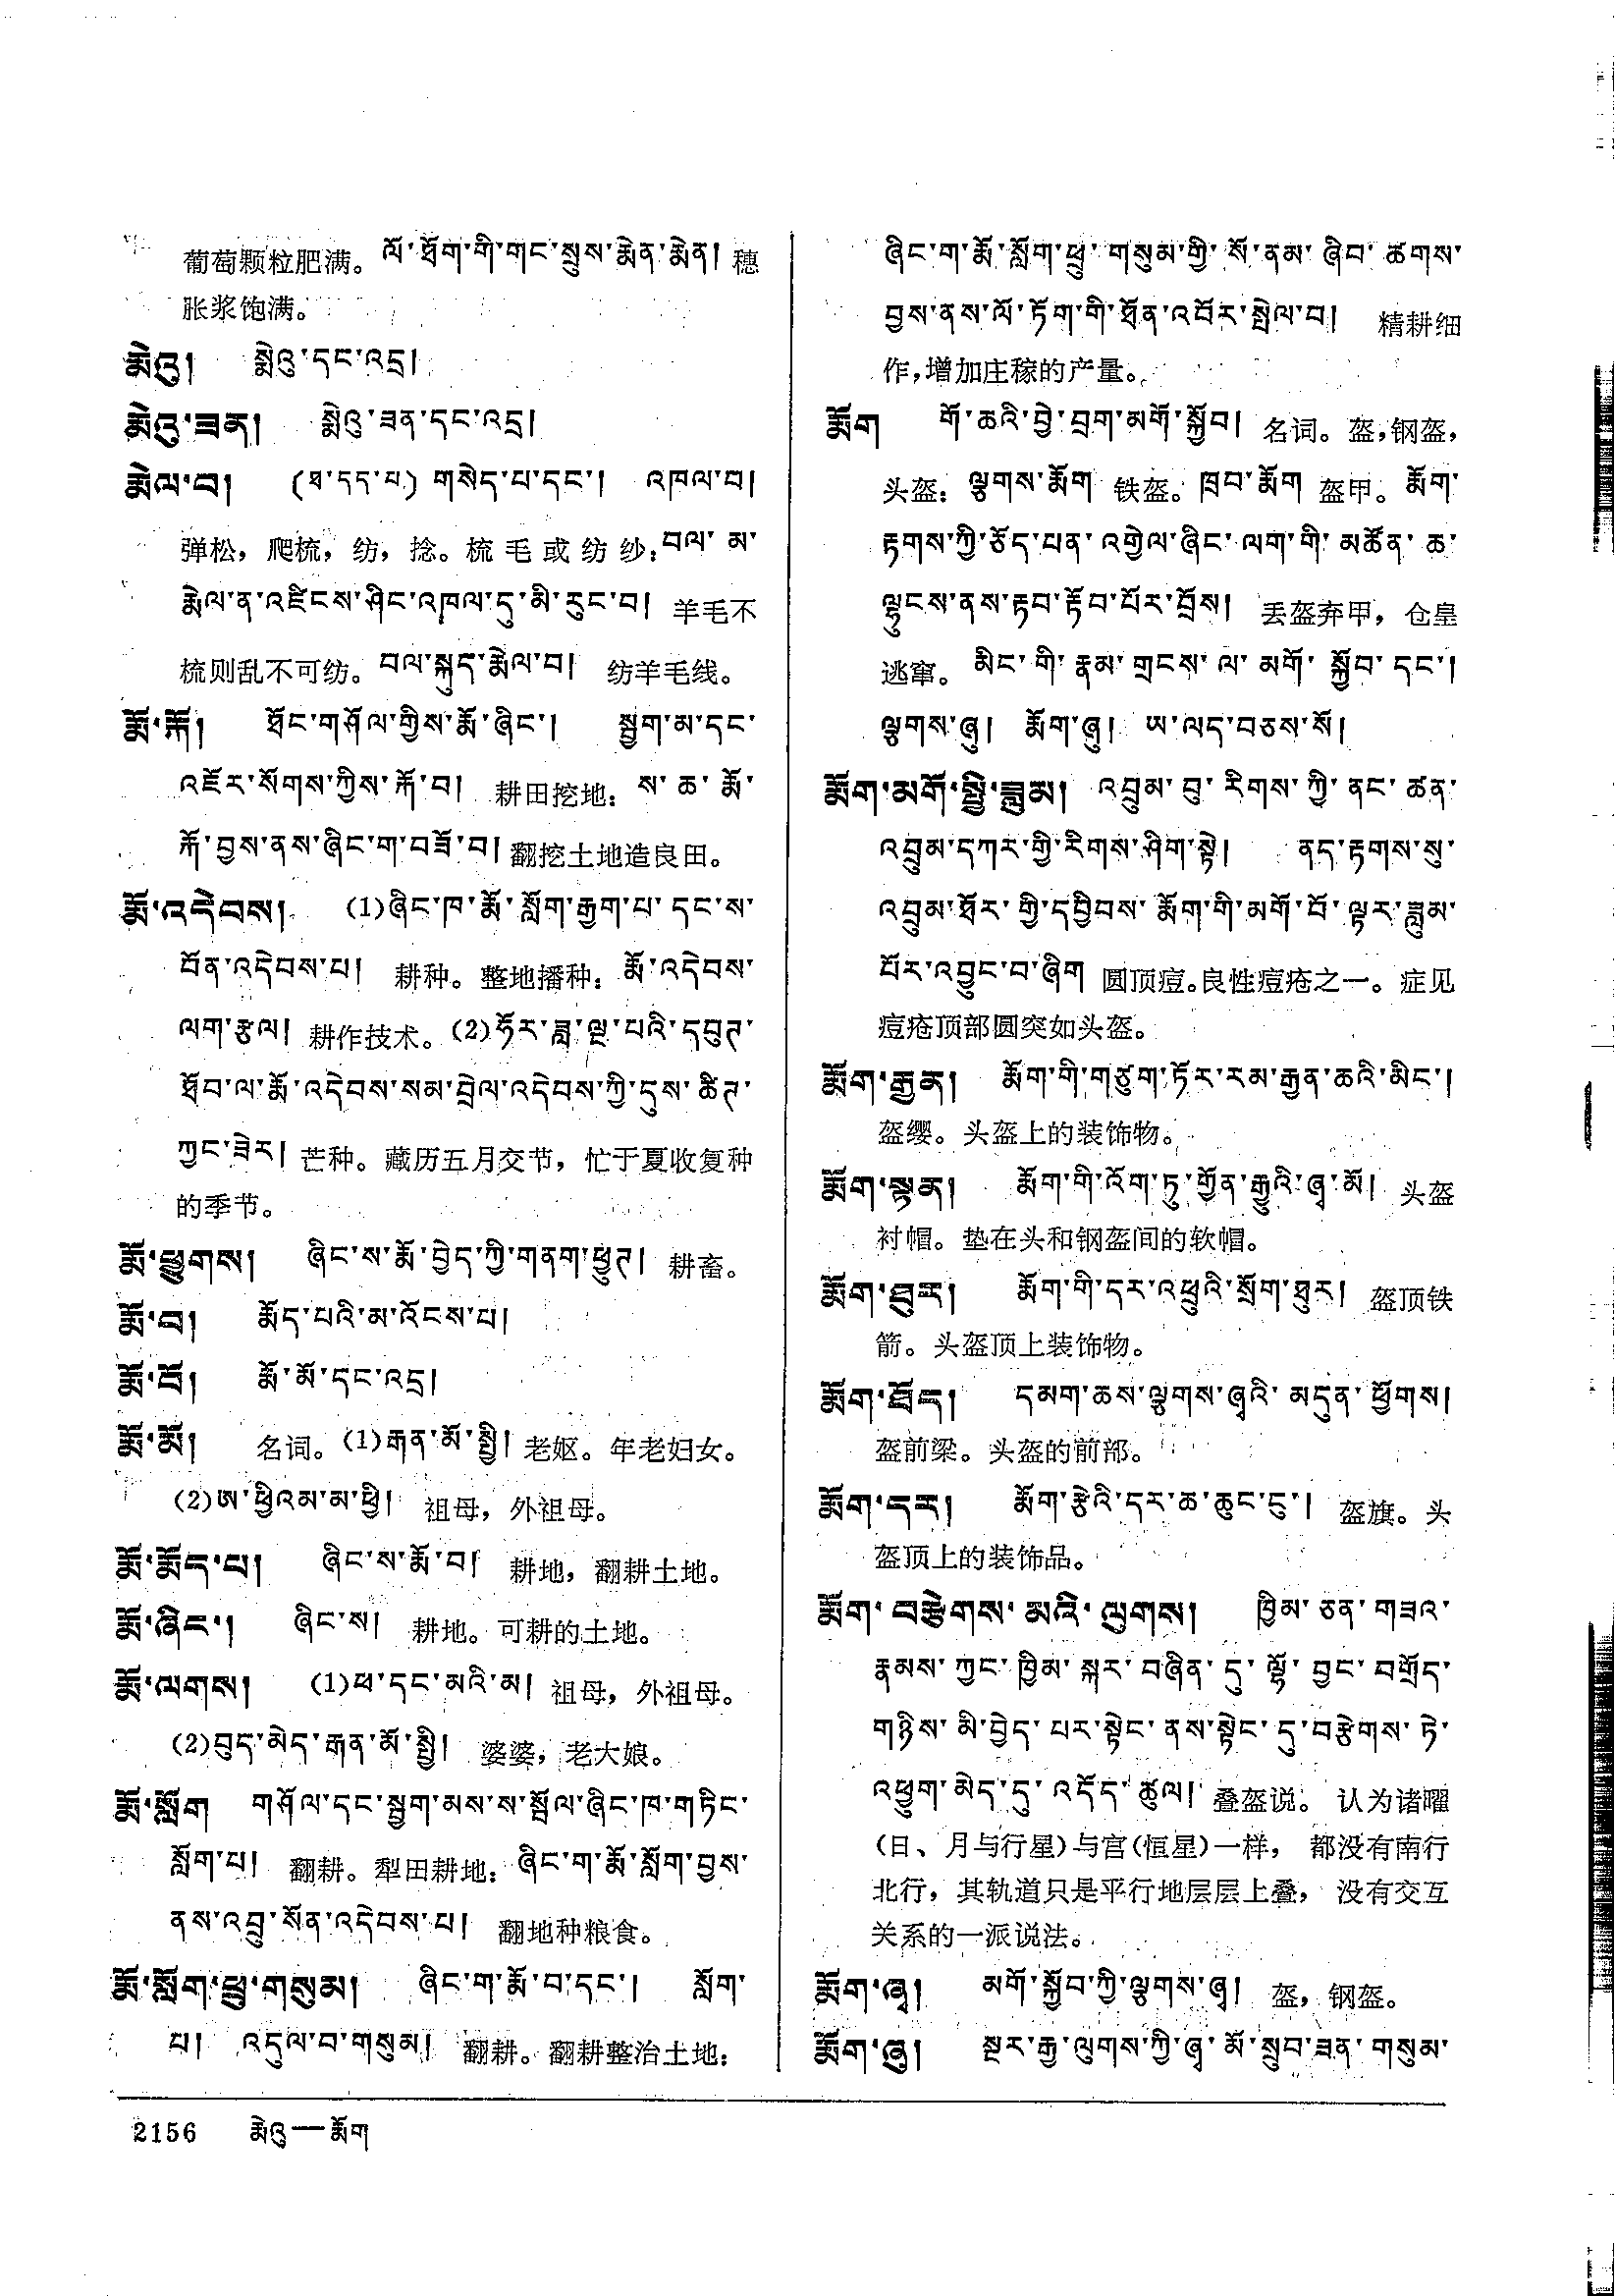 葡萄颗粒肥满。ལོ་ཐོག་གི་གང་སྲུས་རྨེན་རྨེན། 穗
胀浆饱满。
རྨེའུ། སྨེའུ་དང་འདྲ།
རྨེའུ་ཟན། སྨེའུ་ཟན་དང་འདྲ།
རྨེལ་བ། (ཐ་དད་པ) གསེད་པ་དང་། འཁལ་བ།
弹松，爬梳，纺，捻。梳毛或纺纱：བལ་མ་
རྨེལ་ན་འཛིངས་ཤིང་འཁལ་དུ་མི་རུང་བ། 羊毛不
梳则乱不可纺。བལ་སྐུད་རྨེལ་བ། 纺羊毛线。
རྨོ་རྐོ། ཐོང་གཤོལ་གྱིས་རྨོ་ཞིང་། སྦྱག་མ་དང་
འཇོར་སོགས་ཀྱིས་རྐོ་བ། 耕田挖地：ས་ཆ་རྨོ་
རྐོ་བྱས་ནས་ཞིང་ག་བཟོ་བ། 翻挖土地造良田。
རྨོ་འདེབས། (1)ཞིང་ཁ་རྨོ་སློག་རྒྱག་པ་དང་ས་
བོན་འདེབས་པ། 耕种。整地播种：རྨོ་འདེབས་
ལག་རྩལ། 耕作技术。(2)ཧོར་ཟླ་ལྔ་པའི་དབུཊ་
ཐོབ་ལ་རྨོ་འདེབས་སམ་བྲེལ་འདེབས་ཀྱི་དུས་ཚིཊ་
ཀྱང་ཟེར། 芒种。藏历五月交节，忙于夏收复种
的季节。
རྨོ་ཕྱུགས། ཞིང་ས་རྨོ་བྱེད་ཀྱི་གནག་ཕྱུཊ། 耕畜。
རྨོ་བ། རྨོད་པའི་མ་འོངས་པ།
རྨོ་བོ། རྨོ་མོ་དང་འདྲ།
རྨོ་མོ། 名词。(1)རྒན་མོ་སྤྱི། 老妪。年老妇女。
(2)ཨ་ཕྱིའམ་མ་ཕྱི། 祖母，外祖母。
རྨོ་རྨོད་པ། ཞིང་ས་རྨོ་བ། 耕地，翻耕土地。
རྨོ་ཞིང་། ཞིང་ས། 耕地。可耕的土地。
རྨོ་ལགས། (1)ཕ་དང་མའི་མ། 祖母，外祖母。
(2)བུད་མེད་རྒན་མོ་སྤྱི། 婆婆，老大娘。
རྨོ་སློག གཤོལ་དང་སྦྱག་མས་ས་སློལ་ཞིང་ཁ་གཏིང་
སློག་པ། 翻耕。犁田耕地：ཞིང་ག་རྨོ་སློག་བྱས་
ནས་འབྲུ་སོན་འདེབས་པ། 翻地种粮食。
རྨོ་སློག་ཕྲུ་གསུམ། ཞིང་ག་རྨོ་བ་དང་། སློག་
པ། འདུལ་བ་གསུམ། 翻耕。翻耕整治土地：
ཞིང་ག་རྨོ་སློག་ཕྲུ་གསུམ་གྱི་སོ་ནམ་ཞིབ་ཚགས་
བྱས་ནས་ལོ་ཏོག་གི་ཐོན་འབོར་སྤེལ་བ། 精耕细
作，增加庄稼的产量。
རྨོག གོ་ཆའི་བྱེ་བྲག་མགོ་སྐྱོབ། 名词。盔，钢盔，
头盔：ལྕགས་རྨོག 铁盔。ཁྲབ་རྨོག 盔甲。རྨོག་
རྟགས་ཀྱི་ཅོད་པན་འགྱེལ་ཞིང་ལག་གི་མཚོན་ཆ་
ལྷུངས་ནས་རྟབ་རྟོབ་པོར་བྲོས། 丢盔弃甲，仓皇
逃窜。མིང་གི་རྣམ་གྲངས་ལ་མགོ་སྐྱོབ་དང་།
ལྕགས་ཞུ། རྨོག་ཞུ། ཨ་ལད་བཅས་སོ།
རྨོག་མགོ་སྤྱི་ཟླུམ། འབྲུམ་བུ་རིགས་ཀྱི་ནང་ཚན་
འབྲུམ་དཀར་གྱི་རིགས་ཤིག་སྟེ། ནད་རྟགས་སུ་
འབྲུམ་ཐོར་གྱི་དབྱིབས་རྨོག་གི་མགོ་བོ་ལྟར་ཟླུམ་
པོར་འབྱུང་བ་ཞིག 圆顶痘。良性痘疮之一。症见
痘疮顶部圆突如头盔。
རྨོག་རྒྱན། རྨོག་གི་གཙུག་ཏོར་རམ་རྒྱན་ཆའི་མིང་།
盔缨。头盔上的装饰物。
རྨོག་སྟན། རྨོག་གི་འོག་ཏུ་གྱོན་རྒྱུའི་ཞྭ་མོ། 头盔
衬帽。垫在头和钢盔间的软帽。
རྨོག་ཐུར། རྨོག་གི་དར་འཕྲུའི་སྲོག་ཐུར། 盔顶铁
箭。头盔顶上装饰物。
རྨོག་ཐོད། དམག་ཆས་ལྕགས་ཞྭའི་མདུན་ཕྱོགས།
盔前梁。头盔的前部。
རྨོག་དར། རྨོག་རྩེའི་དར་ཆ་ཆུང་ངུ་། 盔旗。头
盔顶上的装饰品。
རྨོག་བརྩེགས་མའི་ལུགས། ཁྱིམ་ཅན་གཟའ་
རྣམས་ཀྱང་ཁྱིམ་སྐར་བཞིན་དུ་ལྷོ་བྱང་བགྲོད་
གཉིས་མི་བྱེད་པར་སྟེང་ནས་སྟེང་དུ་བརྩེགས་ཏེ་
འཕྱུག་མེད་དུ་འདོད་ཚུལ། 叠盔说。认为诸曜
(日、月与行星)与宫(恒星)一样，都没有南行
北行，其轨道只是平行地层层上叠，没有交互
关系的一派说法。
རྨོག་ཞྭ། མགོ་སྐྱོབ་ཀྱི་ལྕགས་ཞྭ། 盔，钢盔。
རྨོག་ཞུ། སྔར་རྒྱ་ལུགས་ཀྱི་ཞྭ་མོ་སྲུབ་ཟན་གསུམ་
2156 རྨེའུ—རྨོག